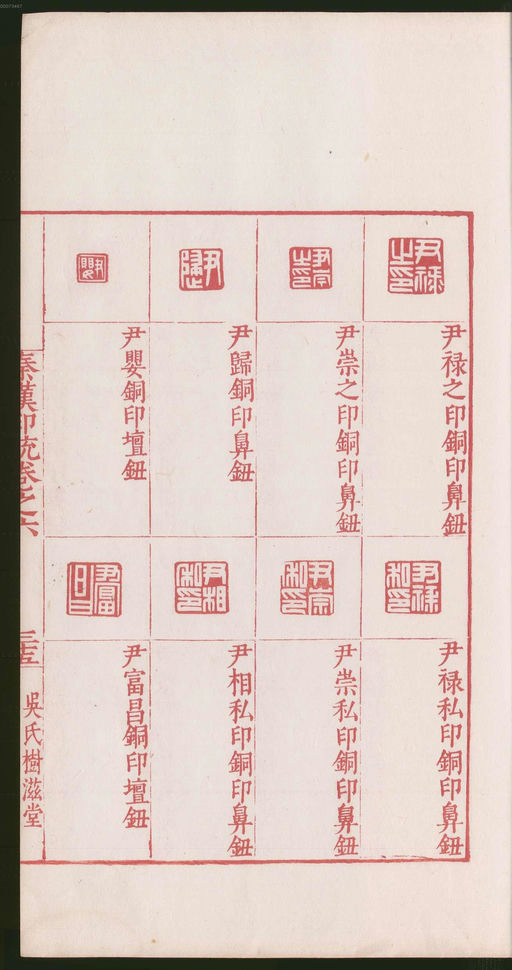 00073467
尹禄之印銅印鼻鈕
尹崇之印銅印鼻鈕
尹歸銅印鼻鈕
尹嬰銅印壇鈕
尹禄私印銅印鼻鈕
尹崇私印銅印鼻鈕
尹相私印銅印鼻鈕
尹富昌銅印壇鈕
秦漢印統卷之六
吳氏樹滋堂